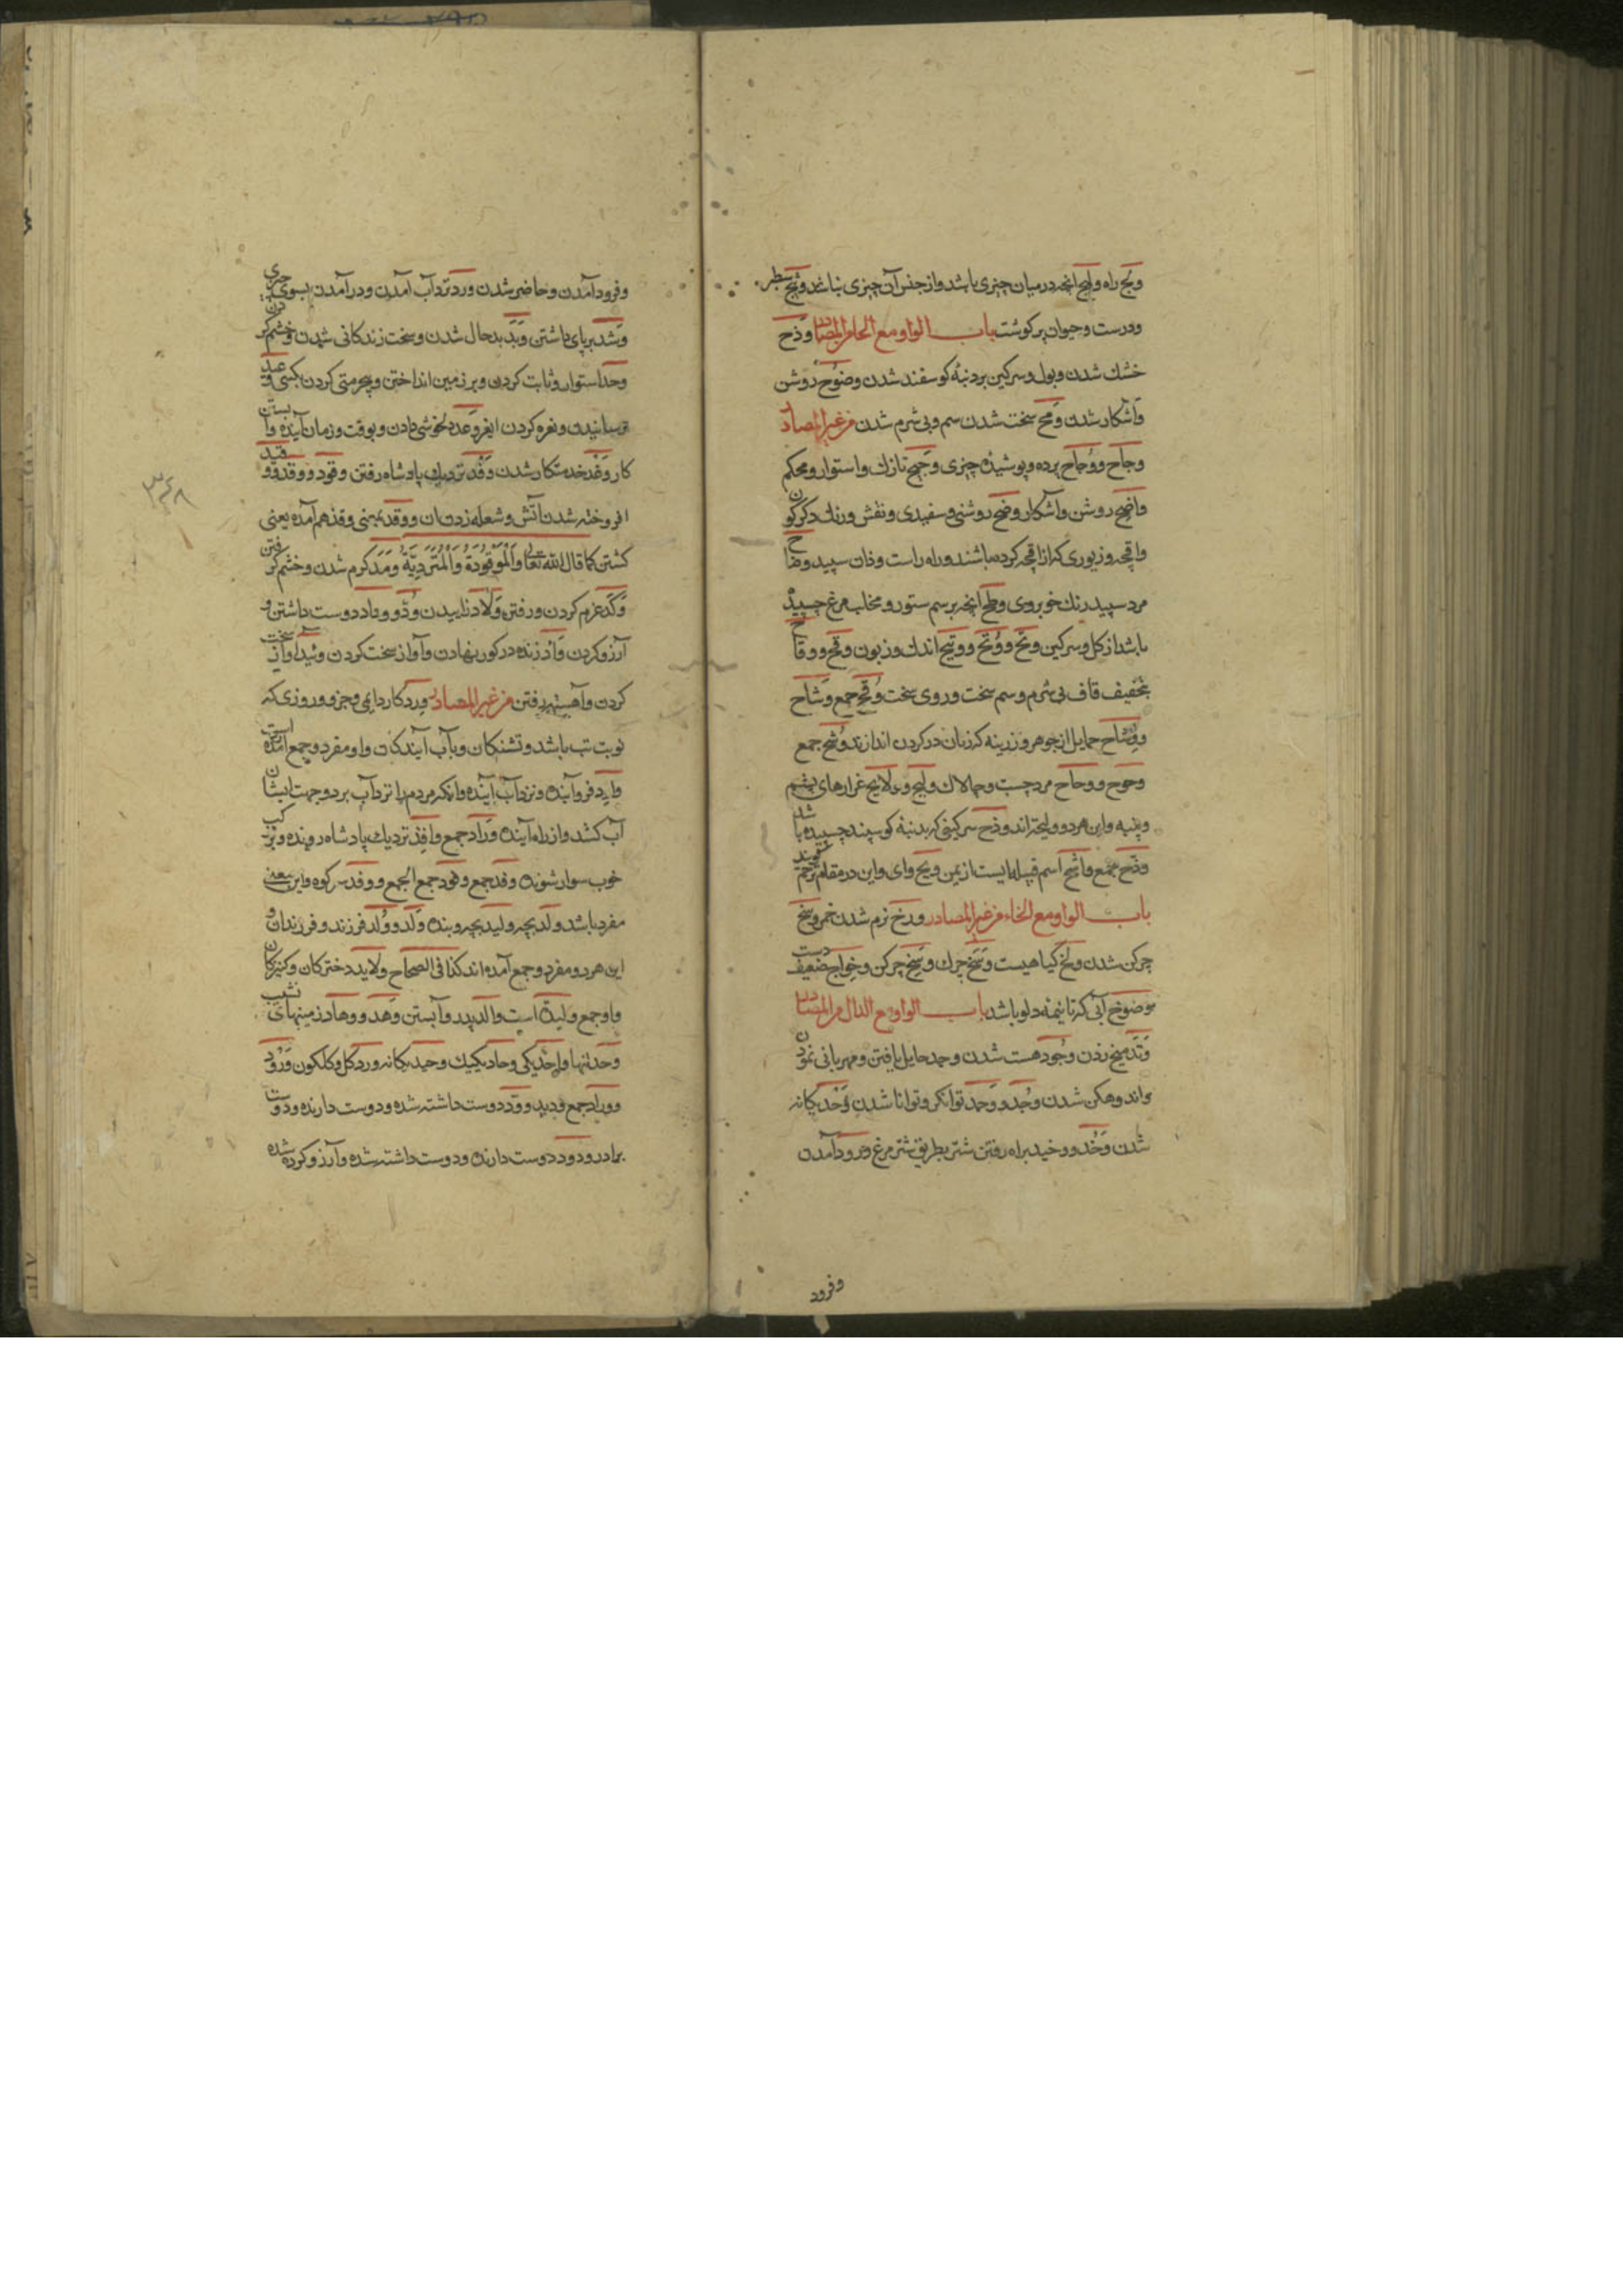 ولج راه ولیج انچه در میان چیزی باشد و از جنس آن چیزی نباشد وثیج سطبر
ودرست وحیوان پرکوشت باب الواو مع الحا من المصادر وذح
خشك شدن وبول وسرکین بر دنبهٔ کوسفند شدن وضوح روشن
وآشکار شدن وقح سخت شدن سم وبی شرم شدن من غیر المصادر
وجاح ووجاح پرده وپوشیدهٔ چیزی وجیح نازك واستوار ومحکم
واضح روشن وآشکار وضح روشنی وسفیدی ونقش ورنك دکرکون
واقچه وزیوری که از اقچه کرده باشند وراه راست ودان سپید وضاح
مرد سپید رنك خوبروی وطح انچه بر سم ستور ومخلب مرغ چسپیده
باشد از کل وسرکین وتح ووتح ووتیح اندك وزبون وقح ووقاح
بتخفیف قاف بی شرم وسم سخت وروی سخت وقح جمع وشاح
ووشاح حمایل از جوهر وزرینه که زنان در کردن اندازند وشح جمع
وحوح ووحواح مرد چست وچالاك ولیح وولایح غرارهای پشم
وپنبه واین هر دو ولیحة اند وذح سرکینی که بدنبهٔ کوسپند چسپیده باشد
وذح جمع واشح اسم قبیله ایست از یمن ویح وای واین در مقام ترحم کویند
باب الواو مع الخاء من غیر المصادر ورخ نرم شدن خمیر وسخ
چرکن شدن ولخ کیاهیست وسخ چرك وسخ چرکن وخواخ ضعیف دست
وضوخ آبی که تا نیمهٔ دلو باشد باب الواو مع الدال من المصادر
وتد میخ زدن وجود هست شدن وجد حایل یافتن ومهربانی نمودن
واندوهکن شدن وجد ووجد توانکر وتوانا شدن وحد یکانه
شدن وخد ووخید براه رفتن شتر بطریق شتر مرغ ورود آمدن
وفرود
وفرود آمدن وحاضر شدن ورد نزد آب آمدن ودر آمدن بسوی چیزی
وشد برپای داشتن وبد بدحال شدن وسخت زندکانی شدن وخشم کردن
وحد استوار وثابت کردن وبر زمین انداختن وبی حرمتی کردن بکسی وعید
ترسانیدن ونعره کردن وعد خوشی دادن وبوقت وزمان آینده وابستن
کار وغد خدمتکار شدن وفد نزدیك پادشاه رفتن وقود ووقد ووقید
افروخته شدن آتش وشعله زدن آن ووقد بمعنی وقذ هم آمده یعنی
کشتن کما قال الله تعالی والموقوذة والمتردیة ومد کرم شدن وخشم کرفتن
وکد عزم کردن ورفتن ولاد زاییدن ود ووداد دوست داشتن و
آرزو کردن وأد زنده در کور نهادن وآواز سخت کردن وئید آواز سخت
کردن وآهسته رفتن من غیر المصادر ورد کار دایمی وجزو وروزی که
نوبت تب باشد وتشنکان وبآب آیندکان واو مفرد وجمع آمده است
وارد فروآینده ونزد آب آینده وانکه مردم را نزد آب برد وجهت ایشان
آب کشد واز راه آینده وراد جمع وافد نزدیك پادشاه رونده وبر مرکب
خوب سوار شونده وفد جمع وفود جمع الجمع ووفد سر کوه واین بمعنی
مفرد باشد ولد بچه ولید بچه وبنده ولد وولد فرزند وفرزندان و
این هر دو مفرد وجمع آمده اند کذا فی الصحاح ولاید دخترکان وکنیزکان
واو جمع ولیدة است والد پدر وآبستن وهد ووهاد زمینهای نشیب
وحد تنها واحد یکی وحاد یکیك وحید یکانه ورد کل وکلکون ورود
ووراد جمع ودید وود دوست داشته شده ودوست دارنده ودوستان
برادر ودود دوست دارنده ودوست داشته شده وآرزو کرده شده
۳۶۸